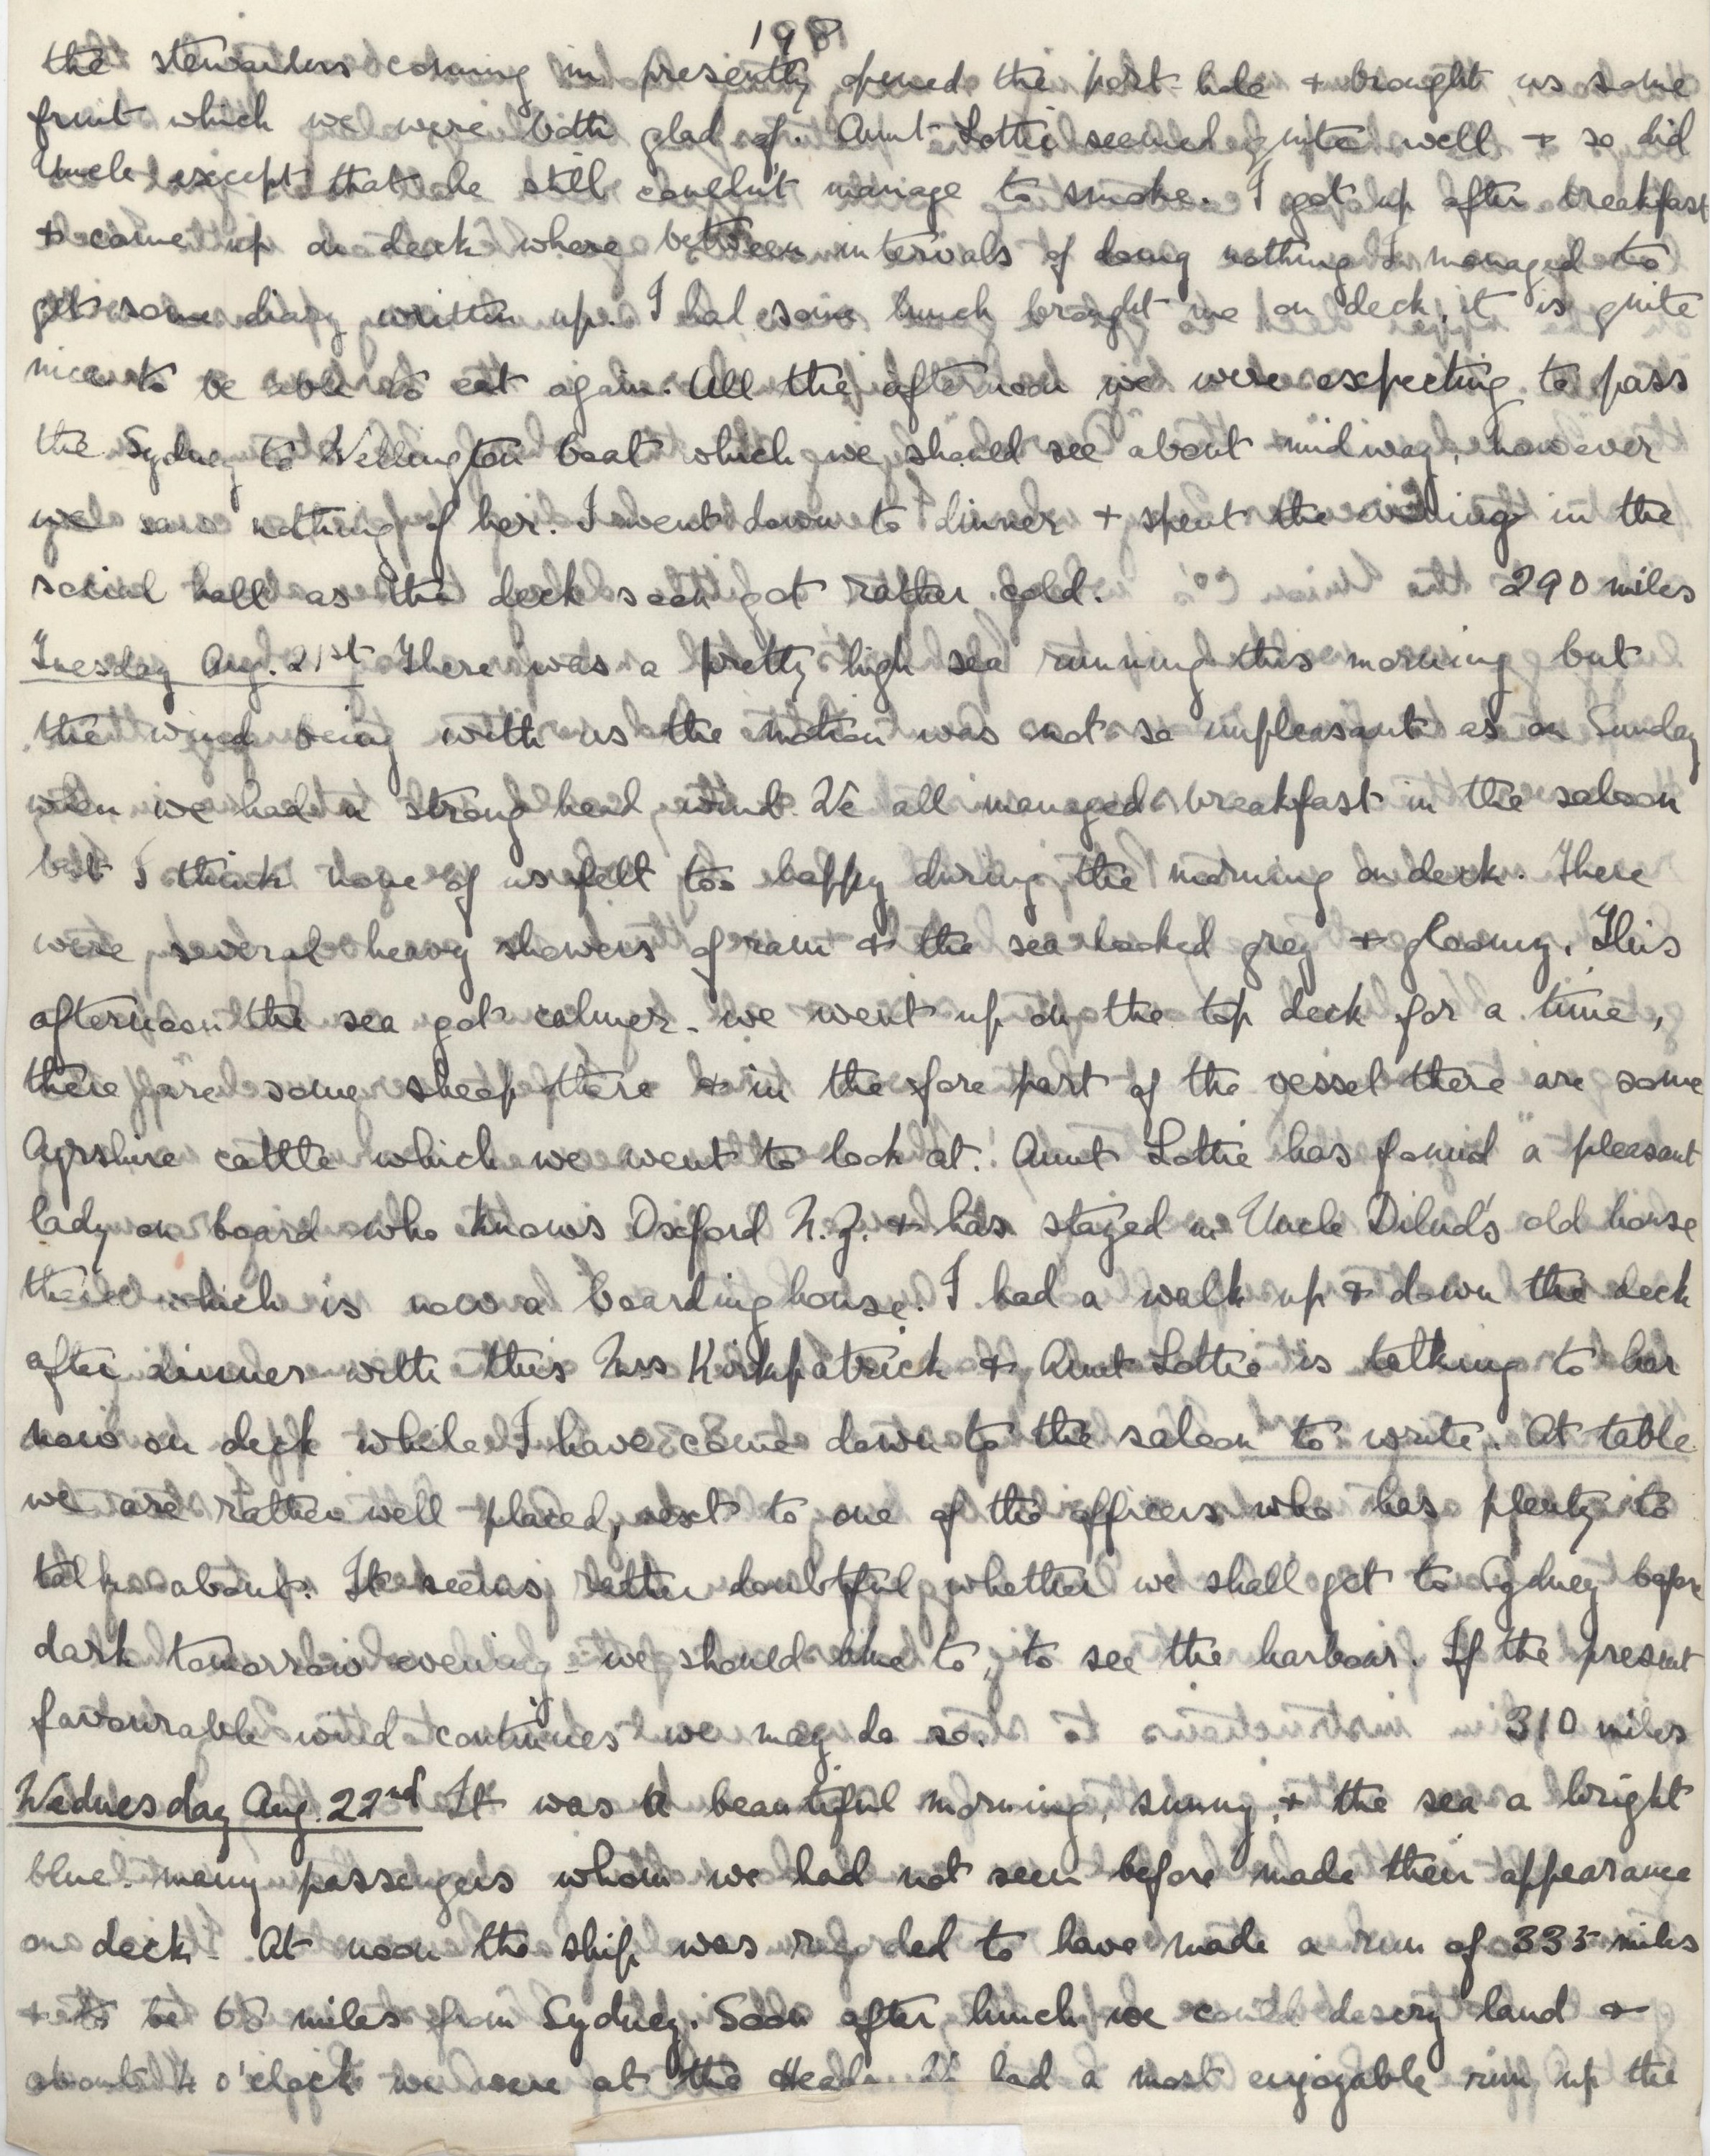 198
the stewardess coming in presently opened the port-hole + brought us some
fruit which we were both glad of. Aunt Lottie seemed quite well + so did
Uncle except that he still couldn't manage to smoke. I got up after breakfast
+ came up on deck where between intervals of doing nothing I managed to
get some diary written up. I had some lunch brought me on deck, it is quite
nice to be able to eat again. All the afternoon we were expecting to pass
the Sydney to Wellington boat which we should see about midway, however
we saw nothing of her. I went down to dinner + spent the evening in the
social hall as the deck soon got rather cold. 290 miles
Tuesday Aug. 21st There was a pretty high sea running this morning but
the wind being with us the motion was not so unpleasant as on Sunday
when we had a strong head wind. We all managed breakfast in the saloon
but I think none of us felt too happy during the morning on deck. There
were several heavy showers of rain + the sea looked grey + gloomy. This
afternoon the sea got calmer - we went up on the top deck for a time,
there are some sheep there + in the fore part of the vessel there are some
Ayrshire cattle which we went to look at. Aunt Lottie has found a pleasant
lady on board who knows Oxford N.Z. + has stayed in Uncle old house
there which is now a boarding house. I had a walk up + down the deck
after dinner with this Mrs Kirkpatrick + Aunt Lottie is talking to her
now on deck while I have come down to the saloon to write. At table
we are rather well placed, next to one of the officers who has plenty to
talk about. It seems rather doubtful whether we shall get to Sydney before
dark tomorrow evening - we should like to, to see the harbour. If the present
favourable wind continues we may do so. 310 miles
Wednesday Aug. 22nd It was a beautiful morning, sunny, + the sea a bright
blue. many passengers whom we had not seen before made their appearance
on deck - At noon the ship was to have made a run of 335 miles
+ to be miles from Sydney. Soon after lunch we could descry land +
about 4 o'clock we were at the Heads. We had a most enjoyable run up the